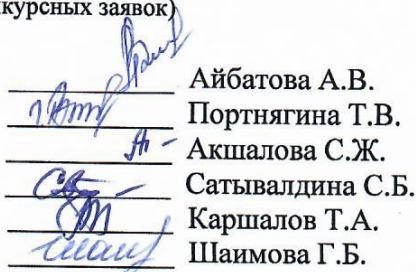 нкурсных заявок)
Айбатова А.В.
Портнягина Т.В.
Акшалова С.Ж.
Сатывалдина С.Б.
Каршалов Т.А.
Шаимова Г.Б.